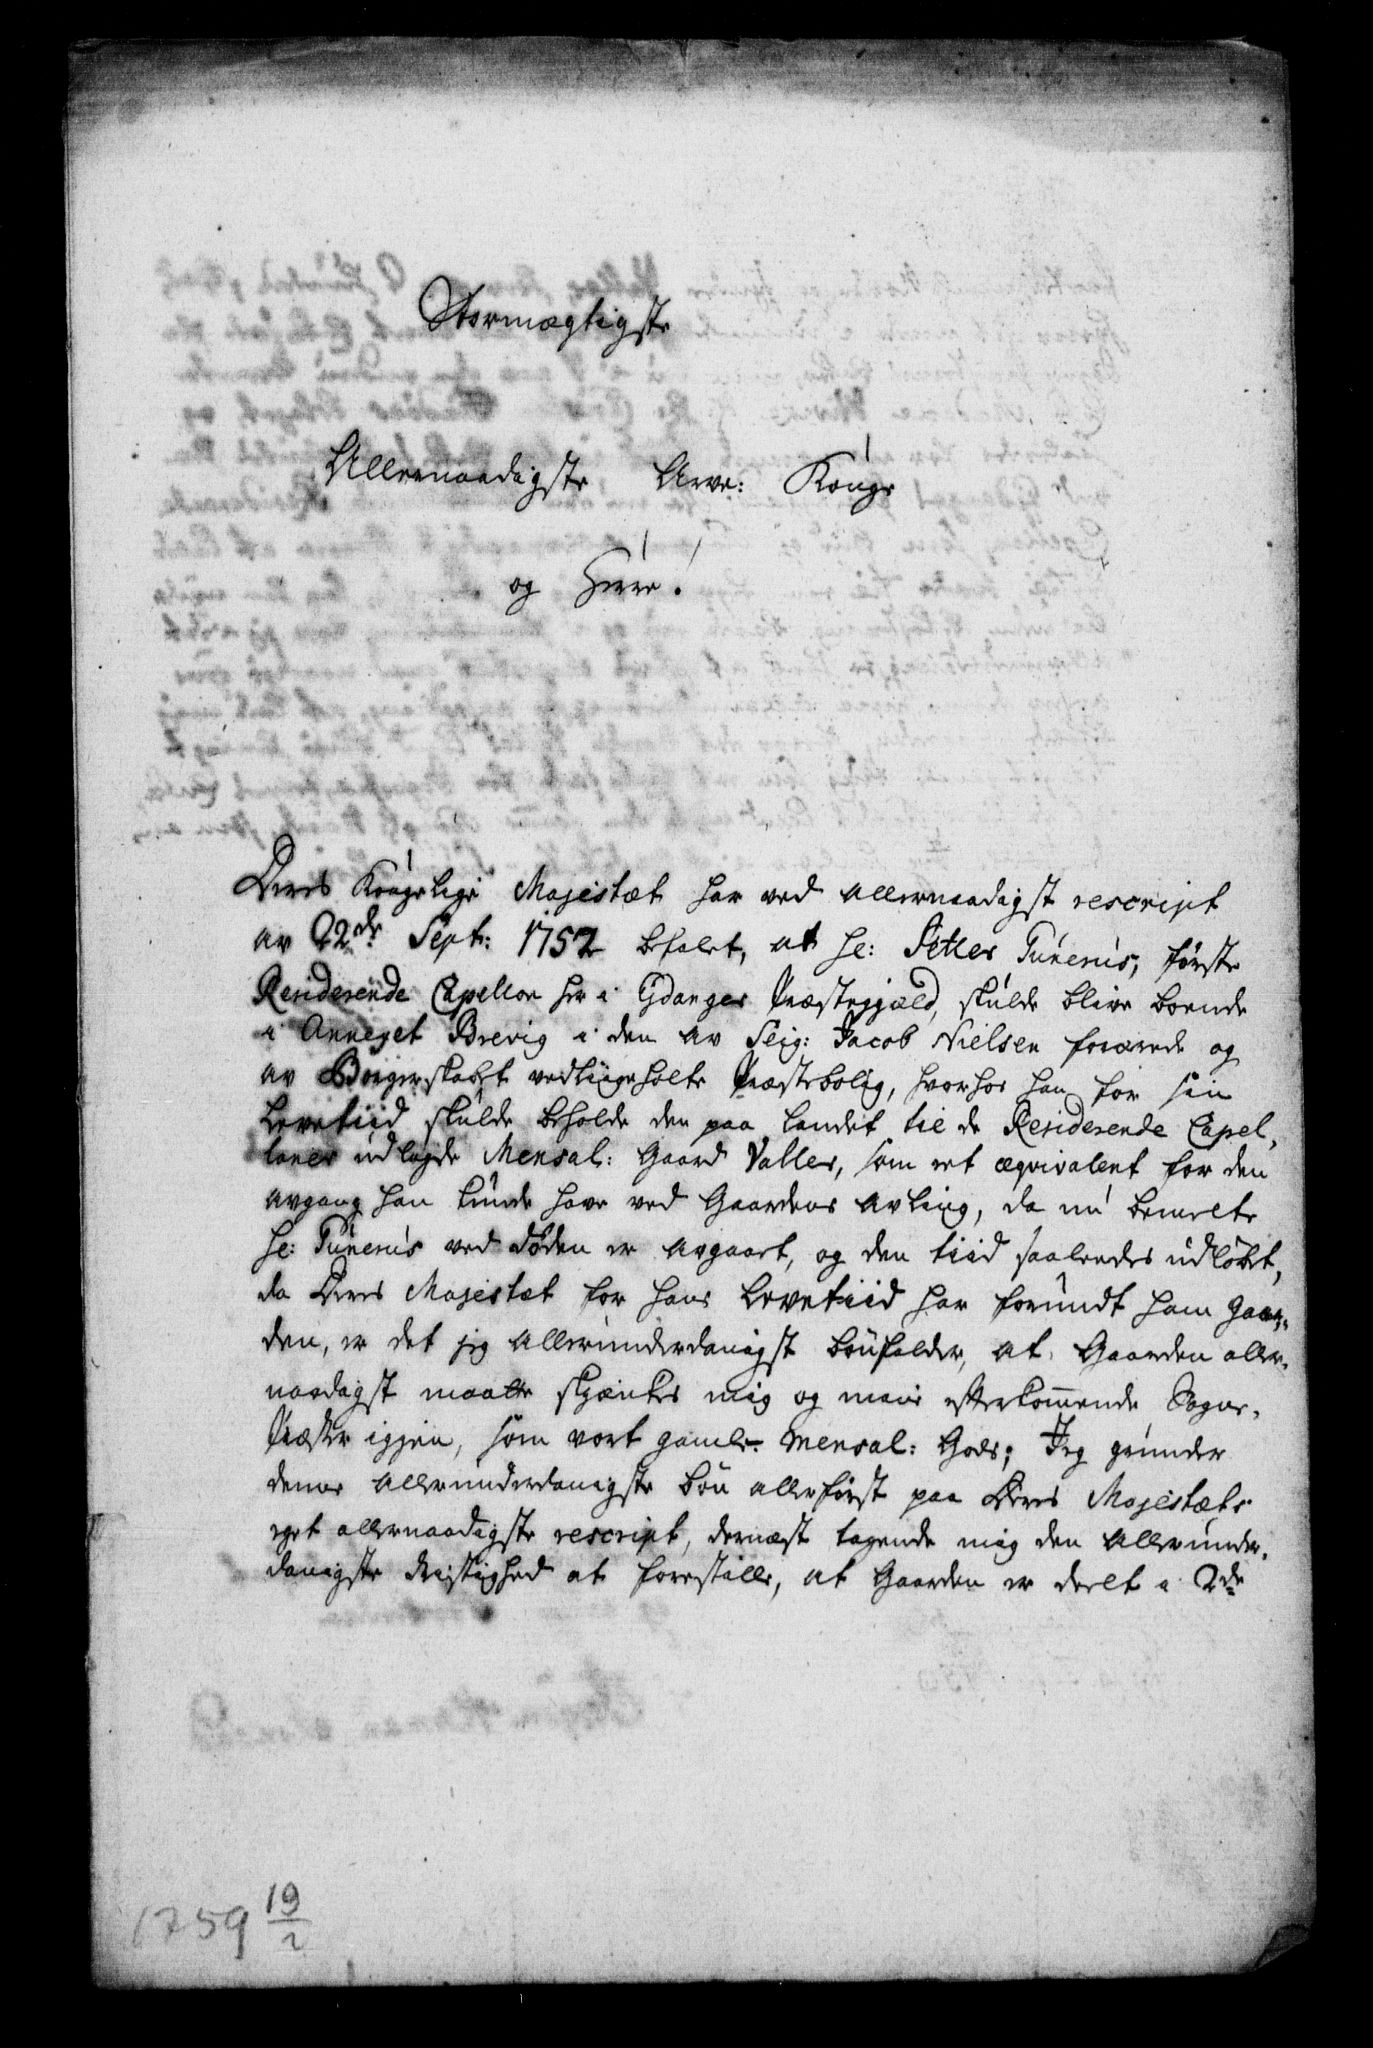 Stormægtigste
Allernaadigste Arve: Konge
og Herre!
Deres Kongelige Majestæt har ved allernaadigst rescript
av 22de Sept: 1752 befalet, at He: Peter Tunerus, første
Residerende Capellan her i Ejdanger Præstegjæld, skulde blive boende
i Annexet Brevig i den av Seig: Jacob Nielsen forærede og
av Borgerskabet vedligeholte Præstebolig, hvorhos han for sin
Levetiid skulde beholde den paa Landet til de Residerende Capel,
laner udlagde Mensal: Gaard Valler, som et æqvivalent for den
avgang han kunde have ved Gaardens avling, da nu bemelte
He: Tunerus ved døden er avgaaet, og den tiid saaledes udløbet,
da Deres Majestæt for hans Levetiid har forundt ham Gaar,
den, er det jeg allerunderdanigst bønfalder, at Gaarden aller,
naadigst maatte skjænkes mig og mine efterkommende Sogne,
Præster igjen, som vort gamle Mensal: Gods; Jeg grunder
denne allerunderdanigste bøn allerførst paa Deres Majestæts
eget allernaadigste rescript, dernæst tagende mig den allerunder,
danigste dristighed at forestille, at Gaarden er deelt i 2de
1759 19/2